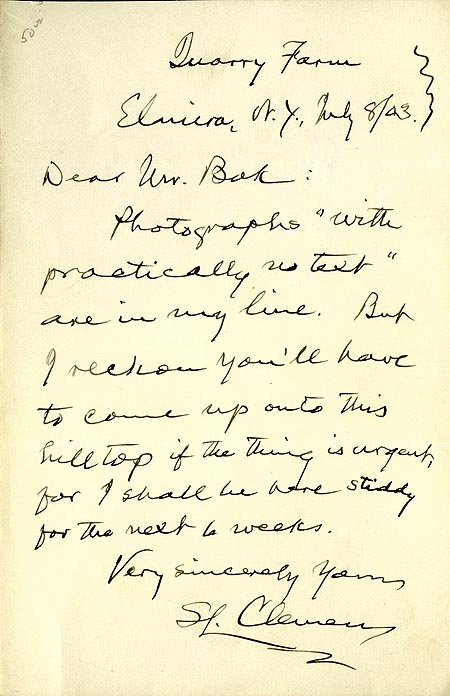 Quarry Farm
Elmira, N.Y., July 8/03.
Dear Mr. Bok:
Photographs "with
practically no text"
are in my line. But
I reckon you'll have
to come up onto this
hilltop if the thing is urgent,
for I shall be here stiddy
for the next 6 weeks.
Very sincerely Yours
SL. Clemens